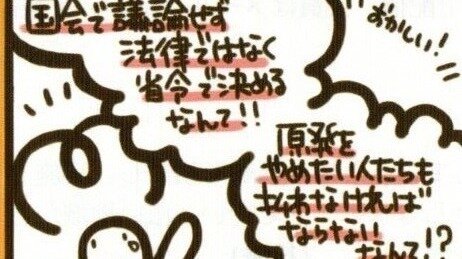 国会で議論せず
法律ではなく
省令で決める
なんて!!
おかしい!
原発を
やめたい人たちも
払わなければ
ならない
なんて!?